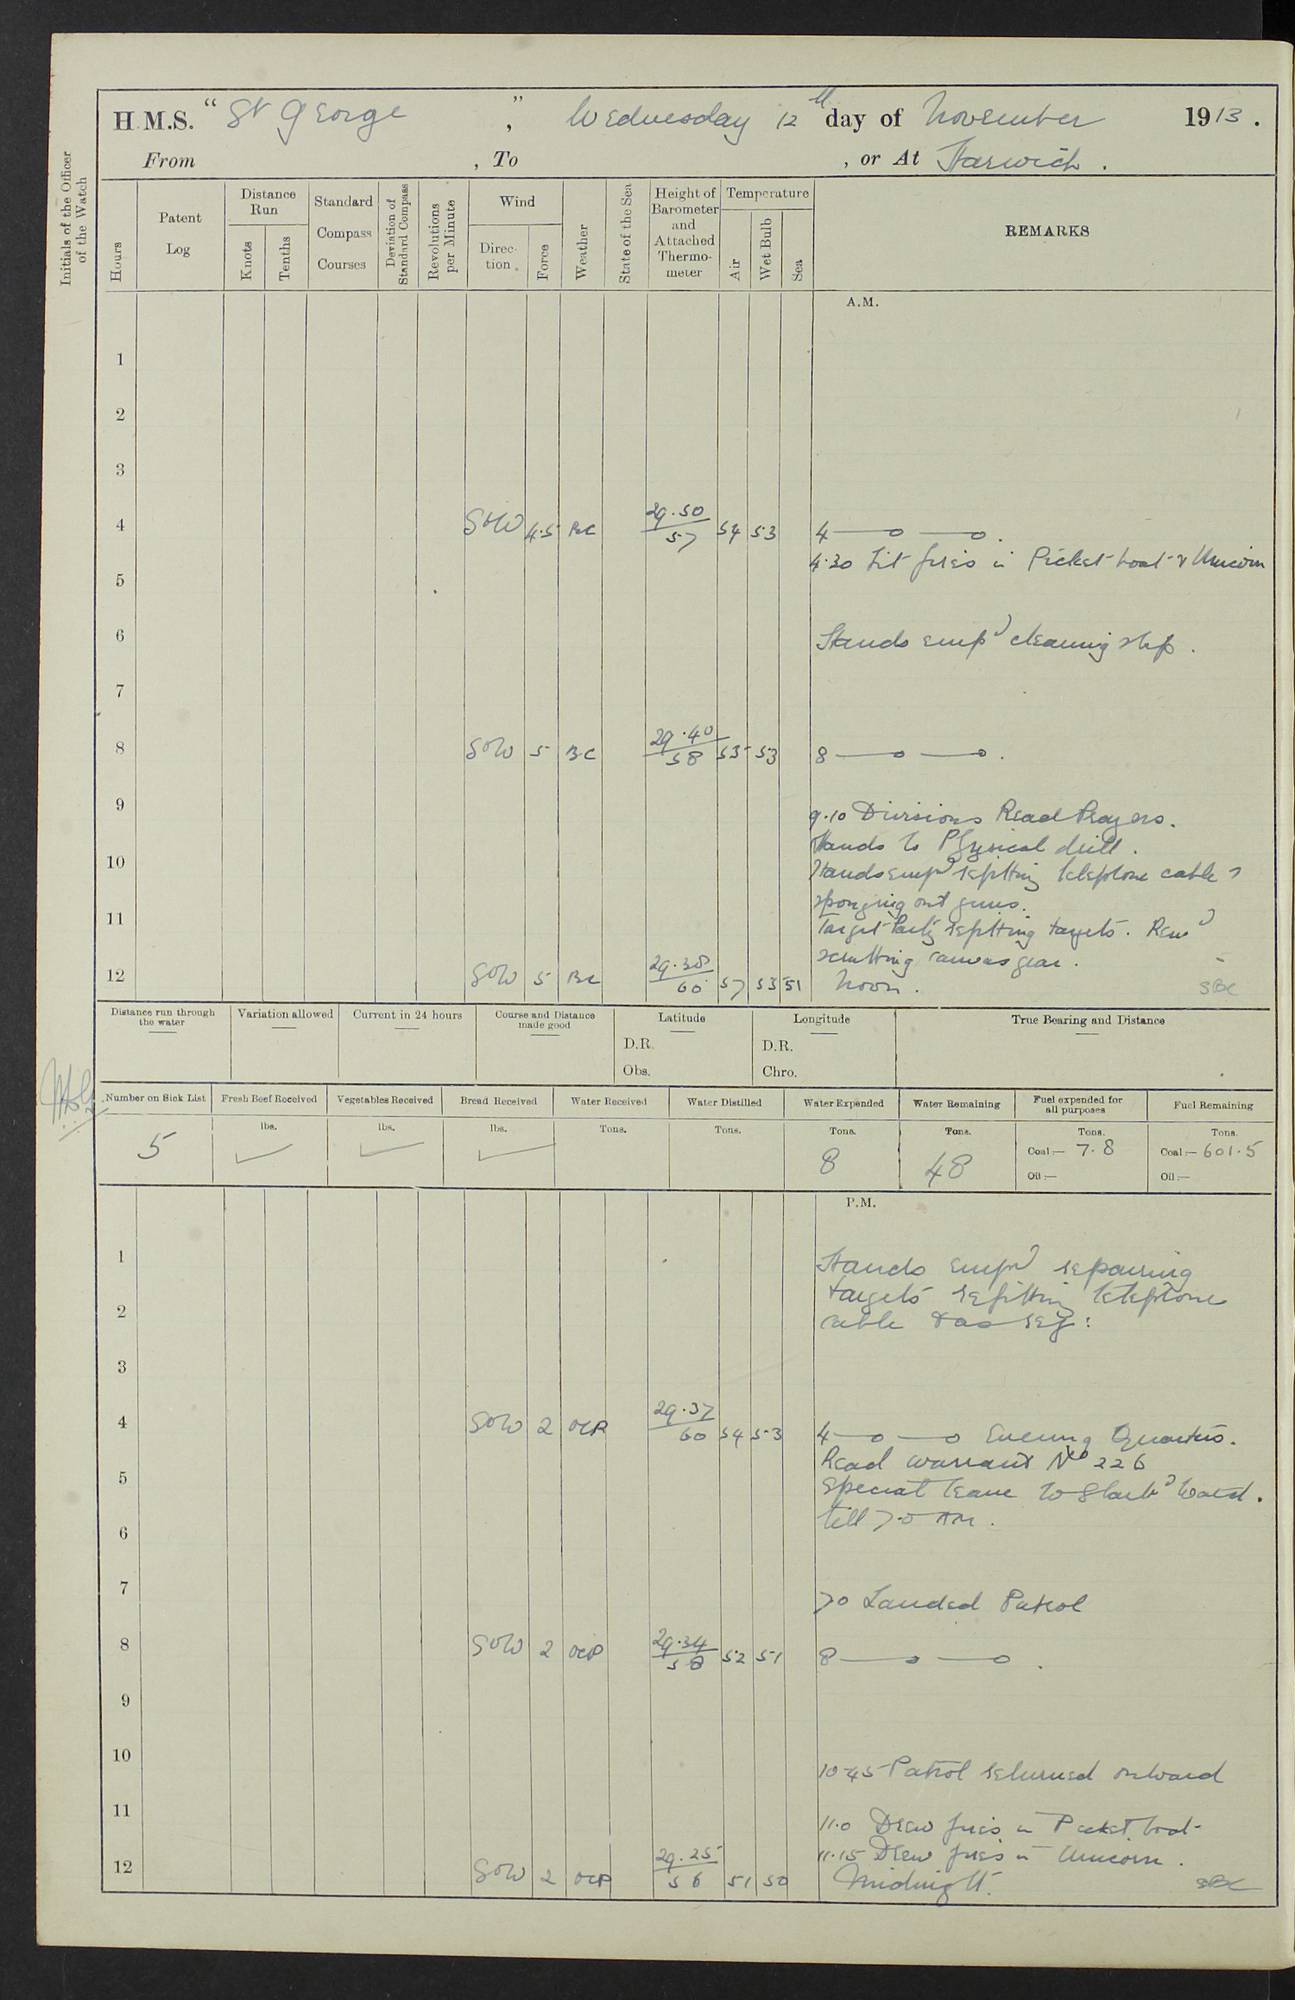 H.M.S. "St George", Wednesday 12th day of November 1913.
From , To , or At Harwich.
Initials of the Officer of the Watch
Hours
Patent Log
Distance Run
Knots
Tenths
Standard Compass Courses
Deviation of Standard Compass
Revolutions per Minute
Wind
Direction
Force
Weather
State of the Sea
Height of Barometer and Attached Thermometer
Temperature
Air
Wet Bulb
Sea
REMARKS
A.M.
1
2
3
4 SoW 4.5 BC 29.50/57 54 53 4
4.30 Lit fires in Picket boat & Unicorn
5
6 Hands emp'd cleaning ship.
7
8 SoW 5 BC 29.40/58 53 53 8
9
9.10 Divisions Read Prayers.
Hands to Physical drill.
10 Hands emp'd refitting telephone cable &
sponging out guns.
11 Target Party refitting targets. Rem'd
scrubbing canvas gear.
12 SoW 5 BC 29.38/60 57 53 51 Noon. SBC
Distance run through the water
Variation allowed
Current in 24 hours
Course and Distance made good
Latitude
D.R.
Obs.
Longitude
D.R.
Chro.
True Bearing and Distance
Number on Sick List
Fresh Beef Received
Vegetables Received
Bread Received
Water Received
Water Distilled
Water Expended
Water Remaining
Fuel expended for all purposes
Fuel Remaining
lbs. lbs. lbs. Tons. Tons. Tons. Tons. Tons. Tons.
5 ✓ ✓ ✓ 8 48 Coal:— 7.8 Coal:— 601.5
Oil:— Oil:—
P.M.
1 Hands emp'd repairing
targets refitting telephone
2 cable & as req:
3
4 SoW 2 OCP 29.37/60 54 53 4 Evening Quarters.
Read warrant No 226
5 Special leave to Starb'd Watch.
till 7.0 AM.
6
7 7.0 Landed Patrol
8 SoW 2 OCP 29.34/58 52 51 8
9
10 10.45 Patrol returned onboard
11 11.0 Drew fires in Picket boat
11.15 Drew fires in Unicorn.
12 SoW 2 OCP 29.25/56 51 50 Midnight. SBC